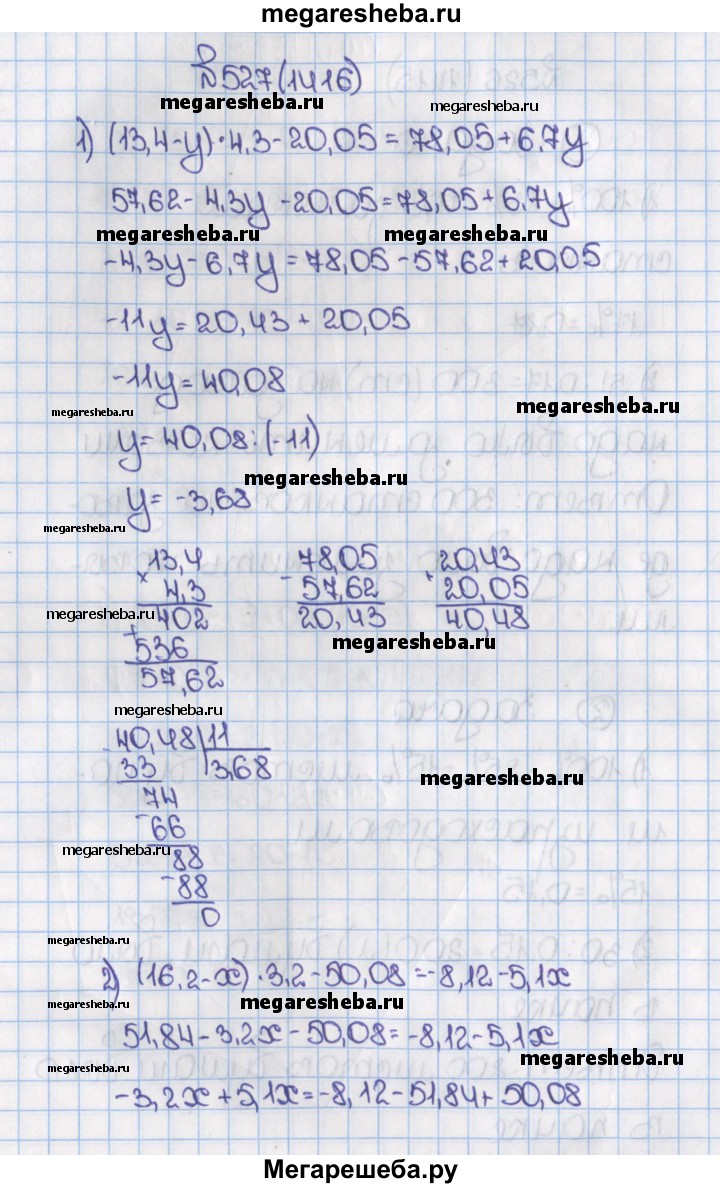 megaresheba.ru
№527(1416)
megaresheba.ru megaresheba.ru
1) (13,4-y)·4,3-20,05=78,05+6,7y
57,62-4,3y-20,05=78,05+6,7y
megaresheba.ru megaresheba.ru
-4,3y-6,7y=78,05-57,62+20,05
-11y=20,43+20,05
-11y=40,08
megaresheba.ru megaresheba.ru
y=40,08:(-11)
megaresheba.ru
y=-3,68
megaresheba.ru
13,4 78,05 20,43
× 4,3 - 57,62 + 20,05
megaresheba.ru
402 20,43 40,48
megaresheba.ru
+
536
57,62
megaresheba.ru
40,48|11
33 3,68
megaresheba.ru
74
-66
megaresheba.ru
88
-88
0
megaresheba.ru
2) (16,2-x)·3,2-50,08=-8,12-5,1x
megaresheba.ru megaresheba.ru
51,84-3,2x-50,08=-8,12-5,1x
megaresheba.ru megaresheba.ru
-3,2x+5,1x=-8,12-51,84+50,08
Мегарешеба.ру